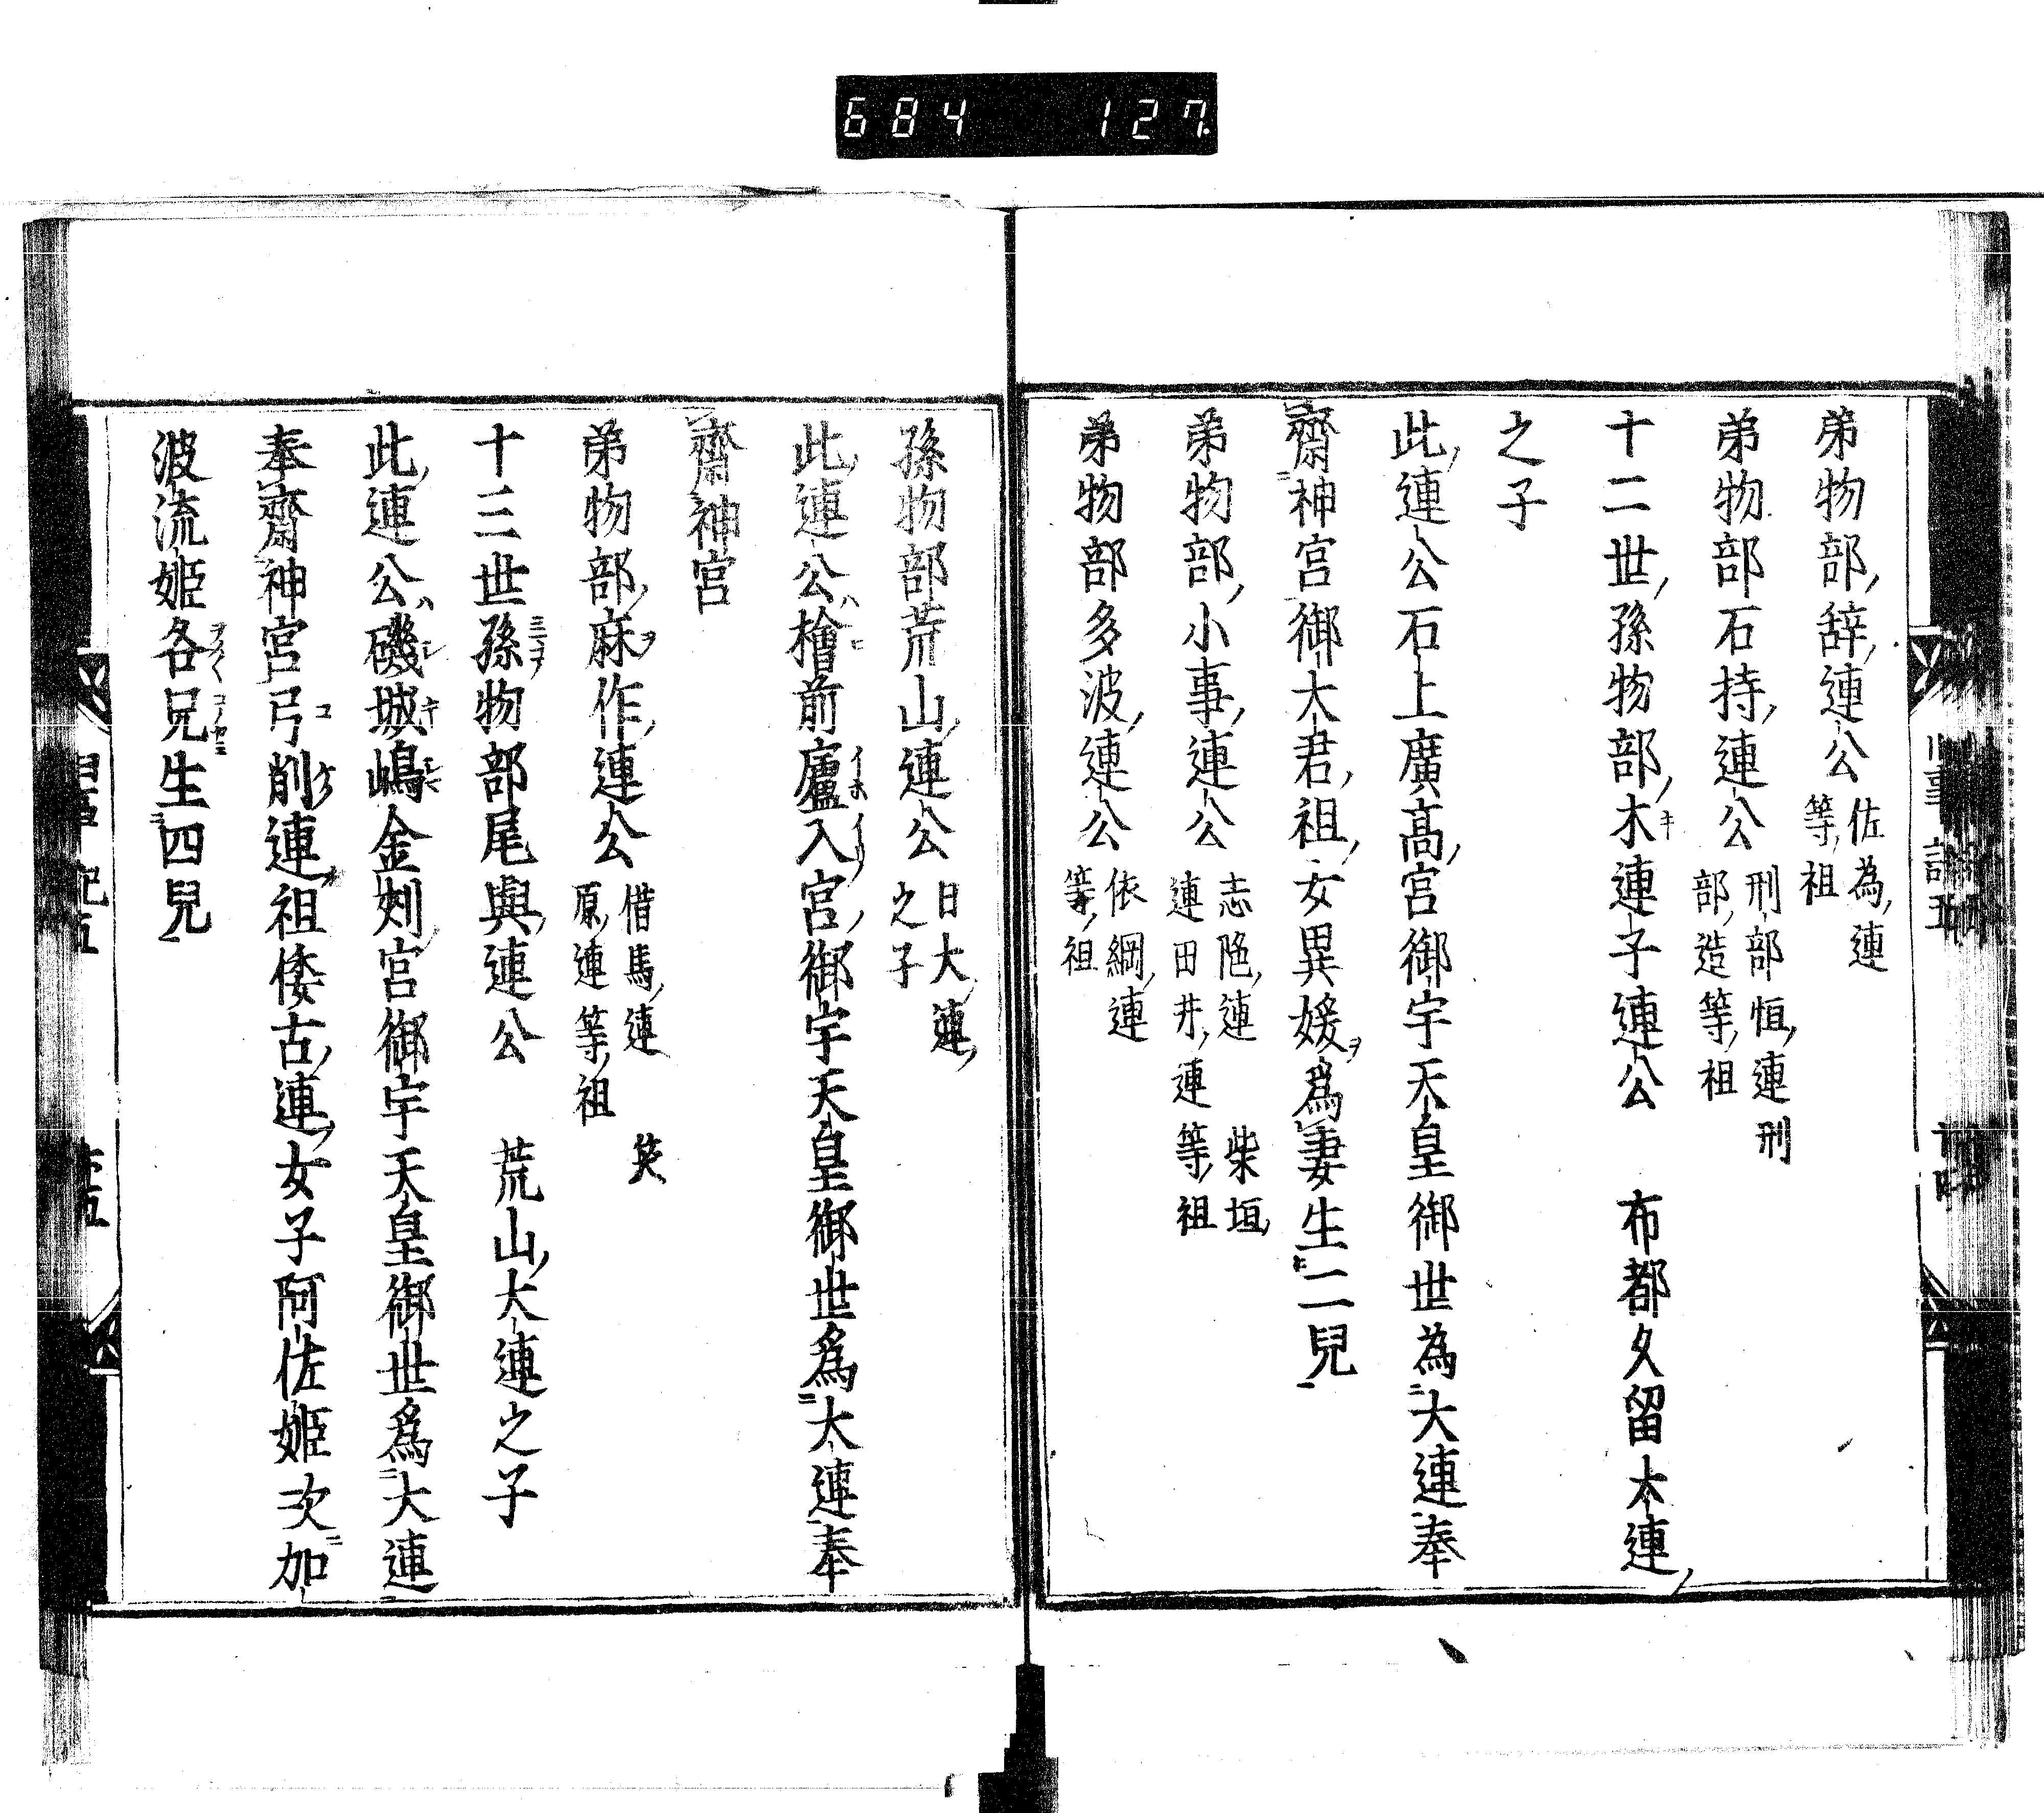 684 127
弟物部辞連公佐為連等祖
弟物部石持連公刑部恒連刑部造等祖
十二世孫物部木連子連公　布都久留大連
之子
此連公石上廣高宮御宇天皇御世為大連奉
齋神宮御大君祖女異媛為妻生二兒
弟物部小事連公志陁連柴垣連田井連等祖
弟物部多波連公依綱連等祖
孫物部荒山連公日大連之子
此連公檜前廬入宮御宇天皇御世爲大連奉
齋神宮
弟物部麻作連公借馬連笑原連等祖
十三世孫物部尾輿連公　荒山大連之子
此連公磯城嶋金刾宮御宇天皇御世爲大連
奉齋神宮弓削連祖倭古連女子阿佐姫次加
波流姫各兄生四兒